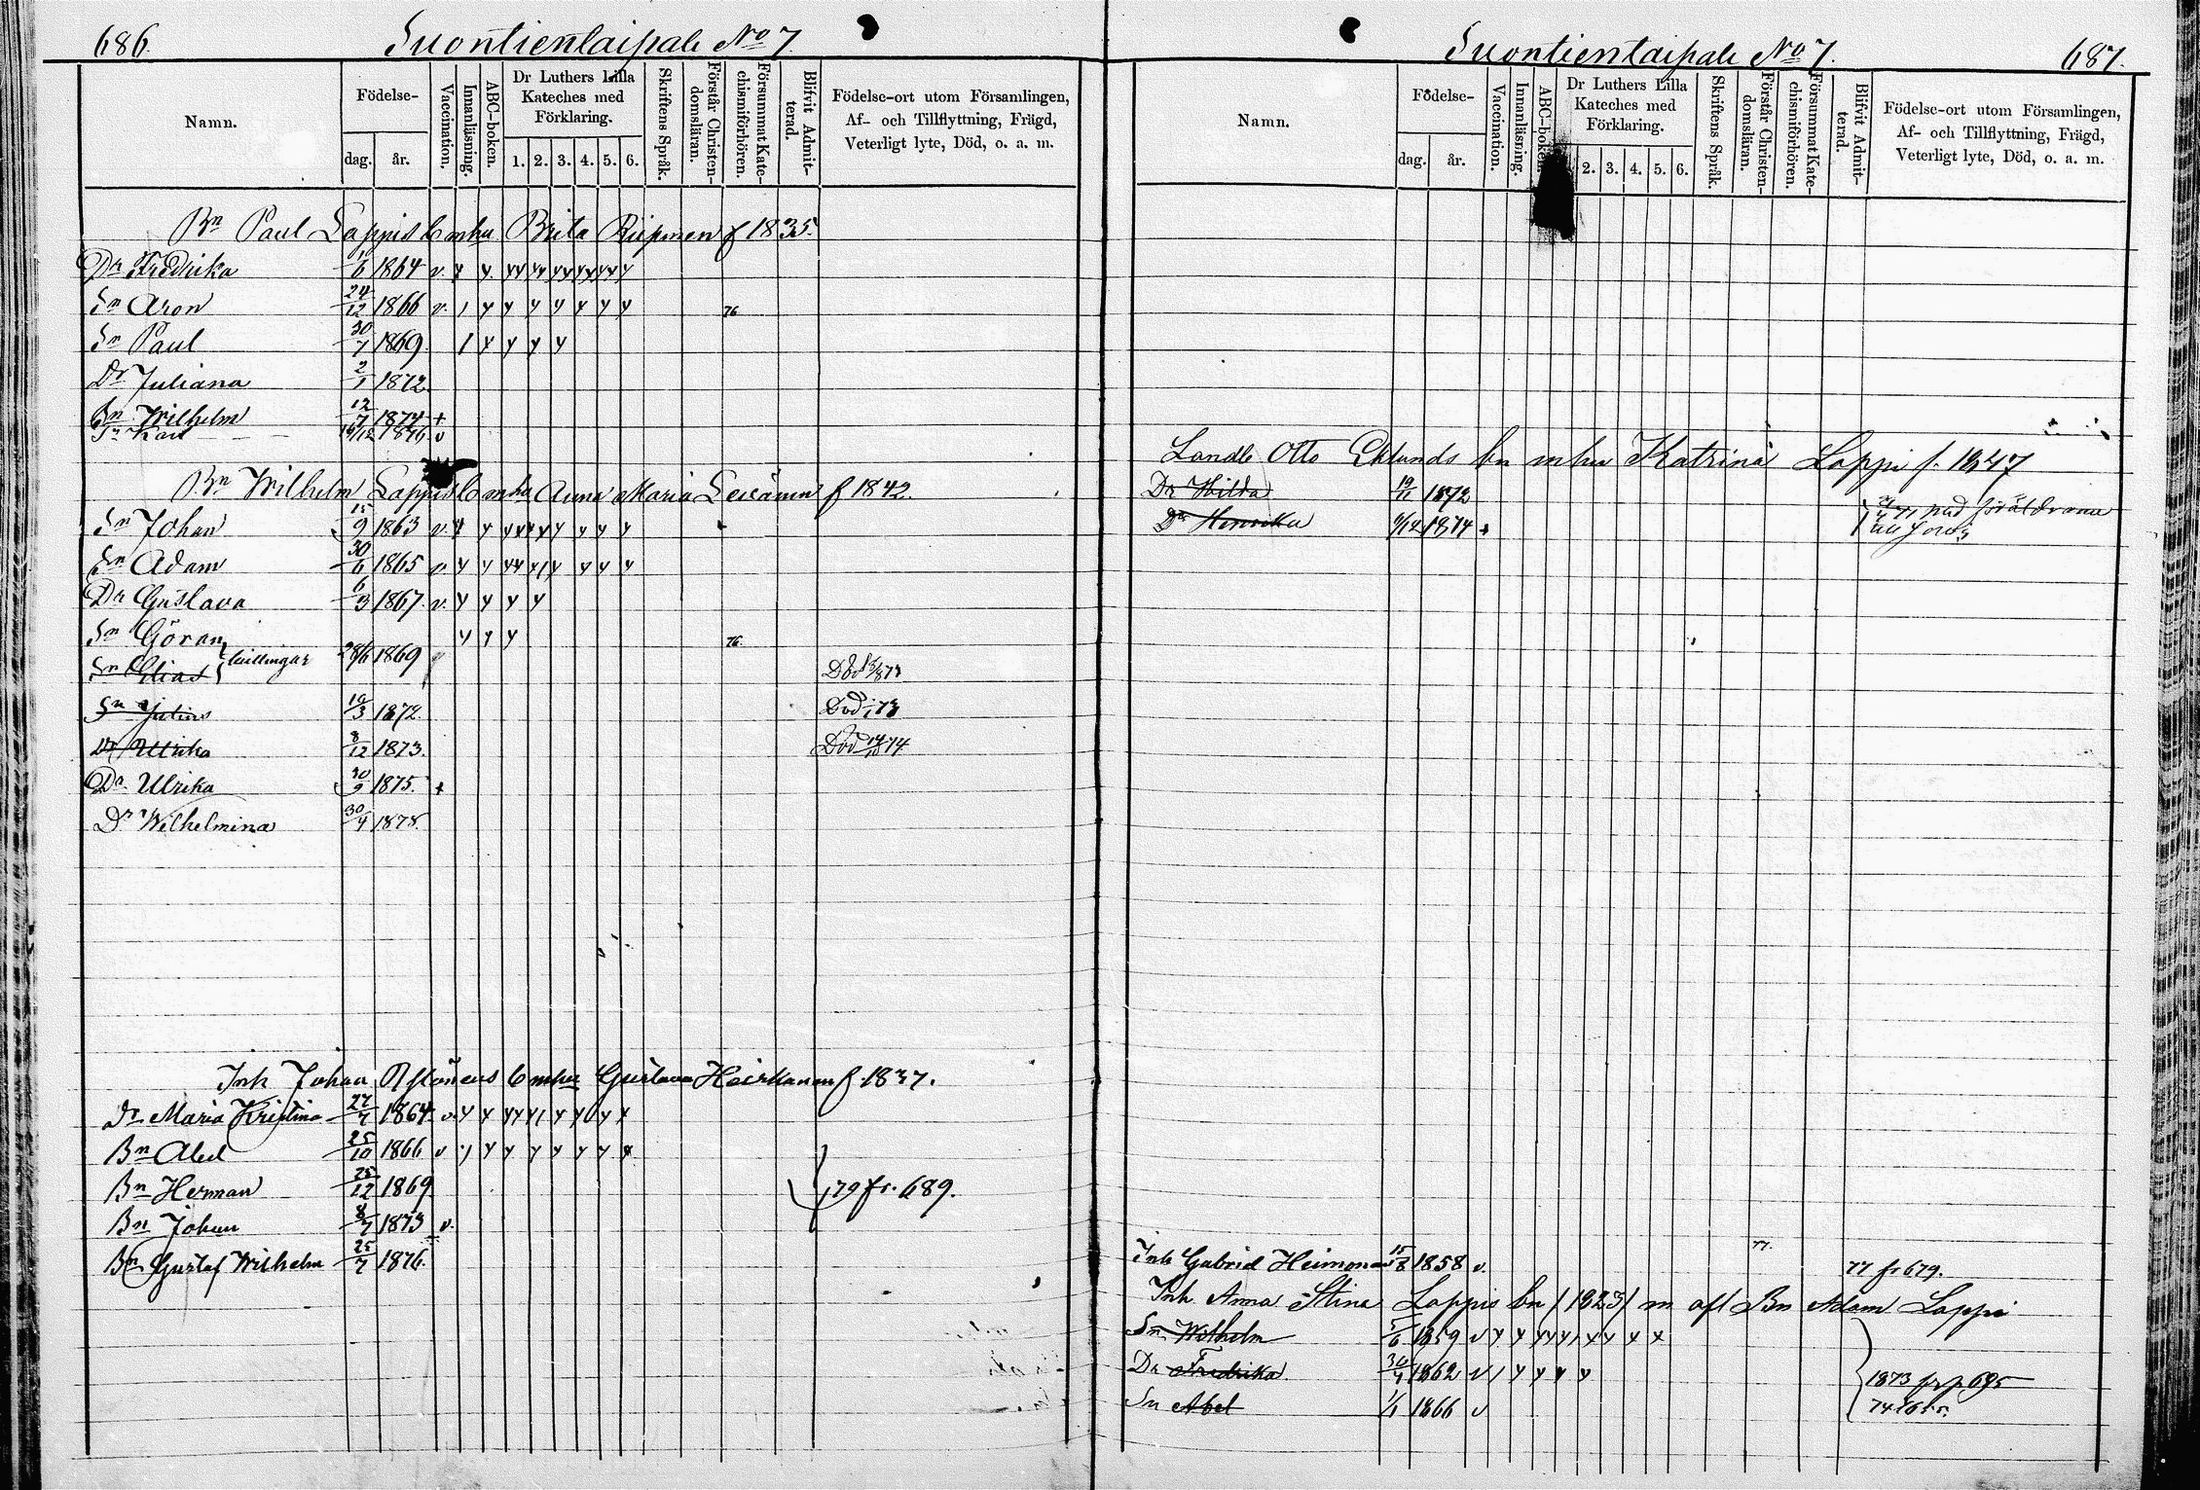 686.
Suontientaipale No 7.
Namn.
Födelse-
dag.
år.
Vaccination.
Innanläsning.
ABC-boken.
Dr Luthers Lilla Kateches med Förklaring.
1. 2. 3. 4. 5. 6.
Skriftens Språk.
Förstår Christendomsläran.
Försummat Katechismiförhören.
Blifvit Admitterad.
Födelse-ort utom Församlingen,
Af- och Tillflyttning, Frägd,
Veterligt lyte, Död, o. a. m.
Bn Paul Lappis b mhu Brita f 1835.
Dr Fredrika 1/6 1864 v. y y yy yy yy yy yy y
Sn Aron 24/12 1866 v. 1 y y y y y y y 76
Sn Paul 30/7 1869. 1 y y y y
Dr Juliana 2/1 1872.
Sn Wilhelm 12/7 1874 +
Sn Karl 1876 v
Bn Wilhelm Lappis b mhu Anna Maria f 1842.
Sn Johan 15/9 1863 v. y y yy yy y y y y
Sn Adam 30/6 1865 v y y yy y1 y y y y
Dr Gustava 6/3 1867. v. y y y y
Sn Göran y y y 76.
Sn Elias } tvillingar 28/6 1869 Död
Sn Julius 19/3 1872. Död 73
Dr Ulrika 8/12 1873. Död 14/10 74
Dr Ulrika 30/9 1875. +
Dr Wilhelmina 30/4 1878.
Inh Johan b mhu Gustava f. 1837.
Dr Maria Kristina 27/7 1864 v. y y yy y1 y y y y
Bn Abel 25/10 1866 v 1 y y y y y y y
Bn Herman 25/12 1869
79 fr. 689.
Bn Johan 8/7 1873 v.
Bn Gustaf Wilhelm 25/7 1876.
Suontientaipale No 7.
687.
Namn.
Födelse-
dag.
år.
Vaccination.
Innanläsning.
ABC-boken.
Dr Luthers Lilla Kateches med Förklaring.
2. 3. 4. 5. 6.
Skriftens Språk.
Förstår Christendomsläran.
Försummat Katechismiförhören.
Blifvit Admitterad.
Födelse-ort utom Församlingen,
Af- och Tillflyttning, Frägd,
Veterligt lyte, Död, o. a. m.
Landb Otto Eklunds bn mhu Katrina Lappi f. 1847
Dr Hilda 19/11 1872
Dr Henrika 1874 +
med föräldrarna
till
Inh Gabriel Heimonen 1858 v. 77. 77 fr 679.
Inh Anna Stina Lappis bn (1823) m afl Bn Adam Lappi
Sn Wilhelm 5/6 1859 v y y yy y1 y y y y
Dr Fredrika 30/4 1862 v 1 y y y y
1873 fr p 695
Sn Abel 1/1 1866 v